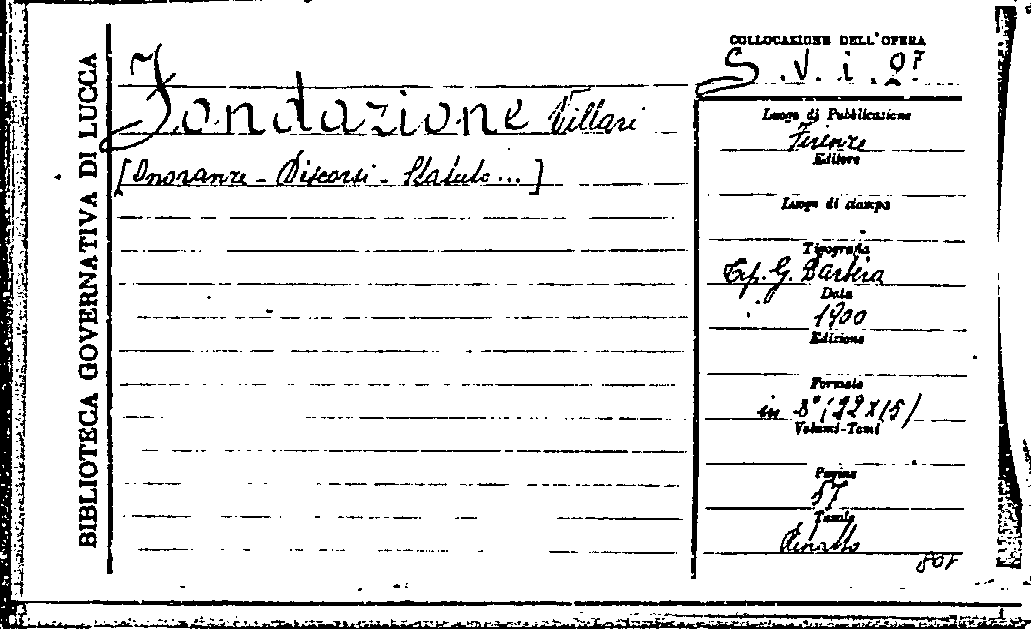 BIBLIOTECA GOVERNATIVA DI LUCCA
Fondazione Villari
[Onoranze - Discorsi - Statuto...]
COLLOCAZIONE DELL'OPERA
Luogo di Pubblicazione
Firenze
Editore
Luogo di stampa
Tipografia
Tip. G. Barbèra
Data
1900
Edizione
Formato
in 8° (22x15)
Volumi-Tomi
Pagine
57
Tavole